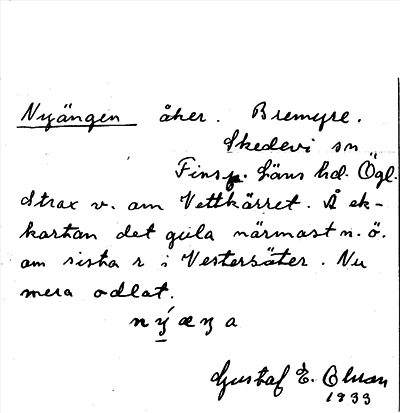 Nyängen åker. Bremyre.
Skedevi sn
Finsp. läns hd. Ögl.
Strax v. om Vettkärret. Å ek-
kartan det gula närmast n. ö.
om sista r i Vestersäter. Nu
mera odlat.
Gustaf E. Olson
1933